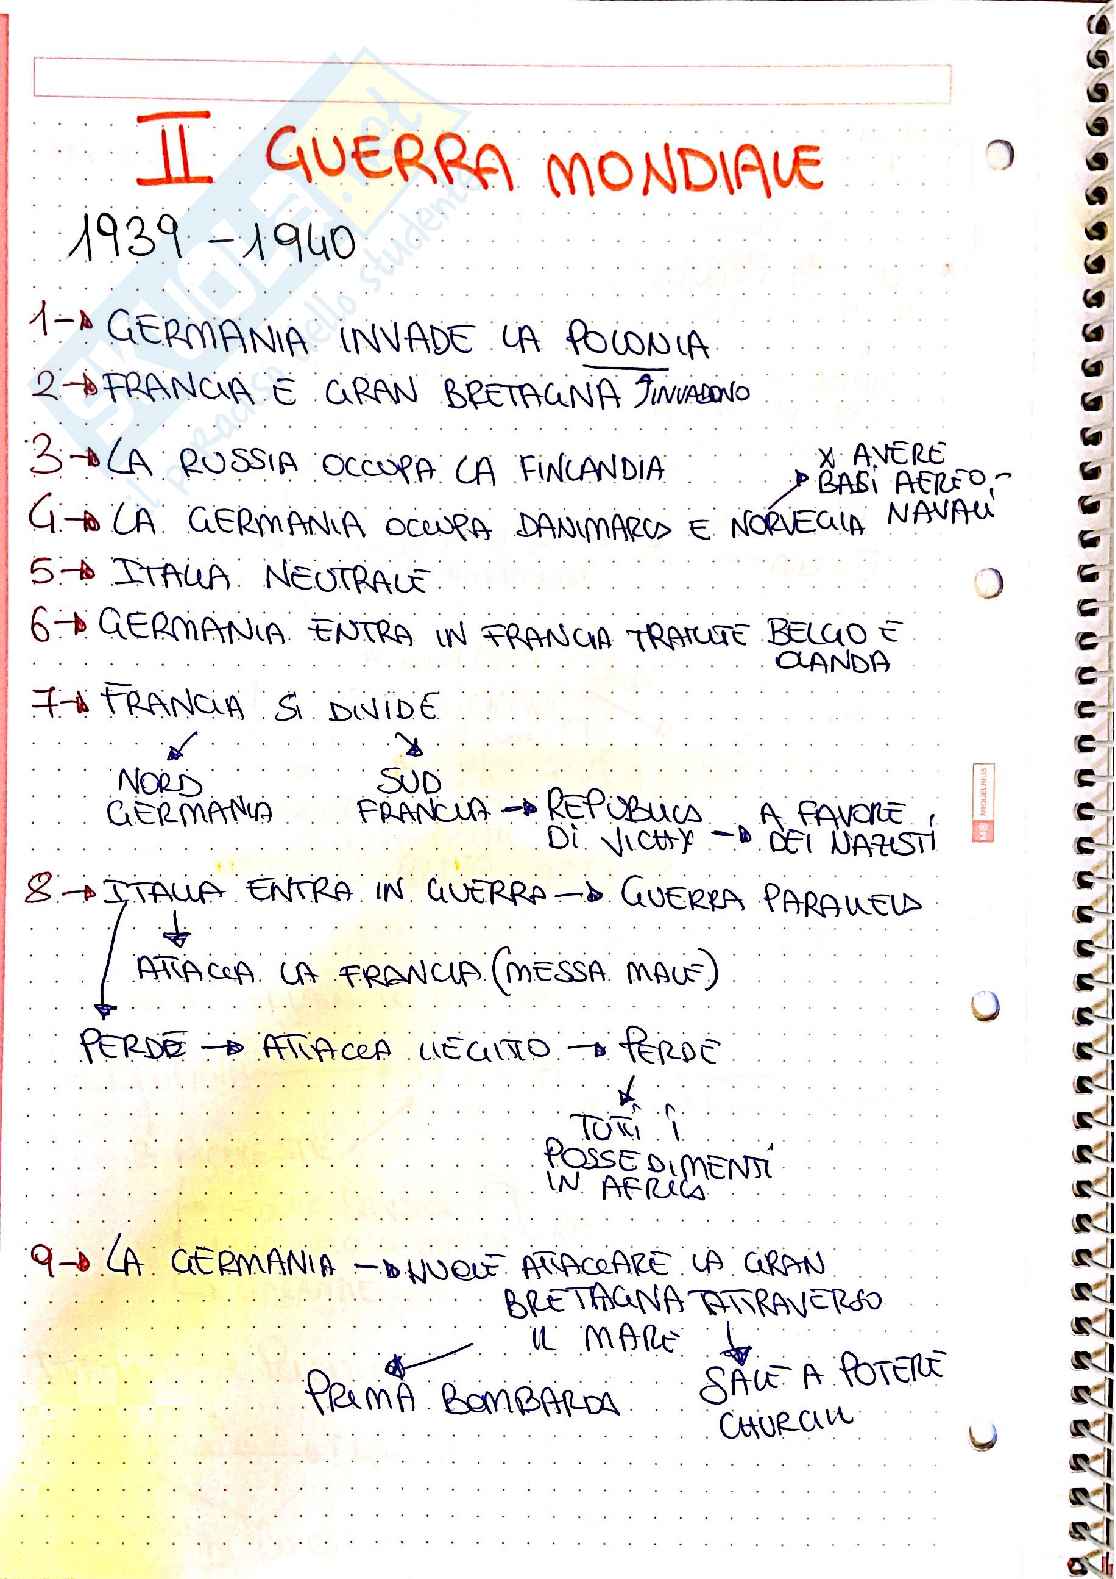 II GUERRA MONDIALE
1939-1940
1→ GERMANIA INVADE LA POLONIA
2→ FRANCIA E GRAN BRETAGNA INVADONO
3→ LA RUSSIA OCCUPA LA FINLANDIA
X AVERE
BASI AEREO-
NAVALI
4→ LA GERMANIA OCCUPA DANIMARCA E NORVEGIA
5→ ITALIA NEUTRALE
6→ GERMANIA ENTRA IN FRANCIA TRAMITE BELGIO E
OLANDA
7→ FRANCIA SI DIVIDE
NORD
GERMANIA
SUD
FRANCIA → REPUBLICA
DI VICHY → A FAVORE
DEI NAZISTI
8→ ITALIA ENTRA IN GUERRA → GUERRA PARALLELA
ATTACCA LA FRANCIA (MESSA MALE)
PERDE → ATTACCA L'EGITTO → PERDE
TUTTI I
POSSEDIMENTI
IN AFRICA
9→ LA GERMANIA → VUOLE ATTACCARE LA GRAN
BRETAGNA ATTRAVERSO
IL MARE
PRIMA BOMBARDA
SALE A POTERE
CHURCILL
SKUOLA.net
il paradiso dello studente
MIQUELRIUS